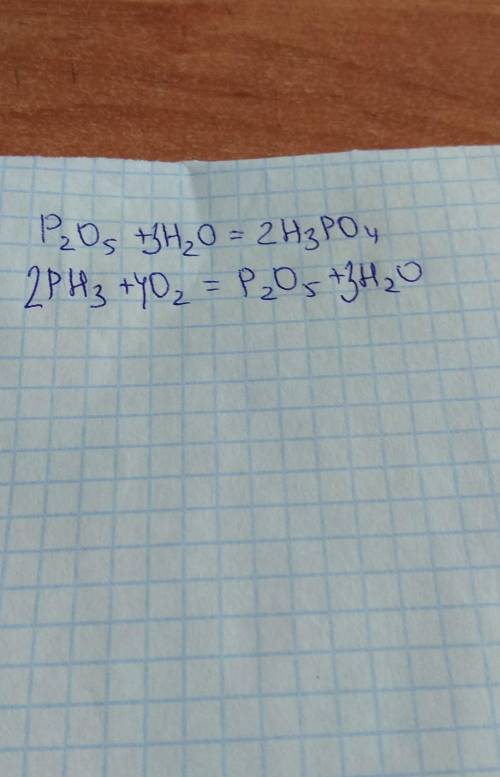 P₂O₅ +3H₂O = 2H₃PO₄
2PH₃ +4O₂ = P₂O₅ +3H₂O